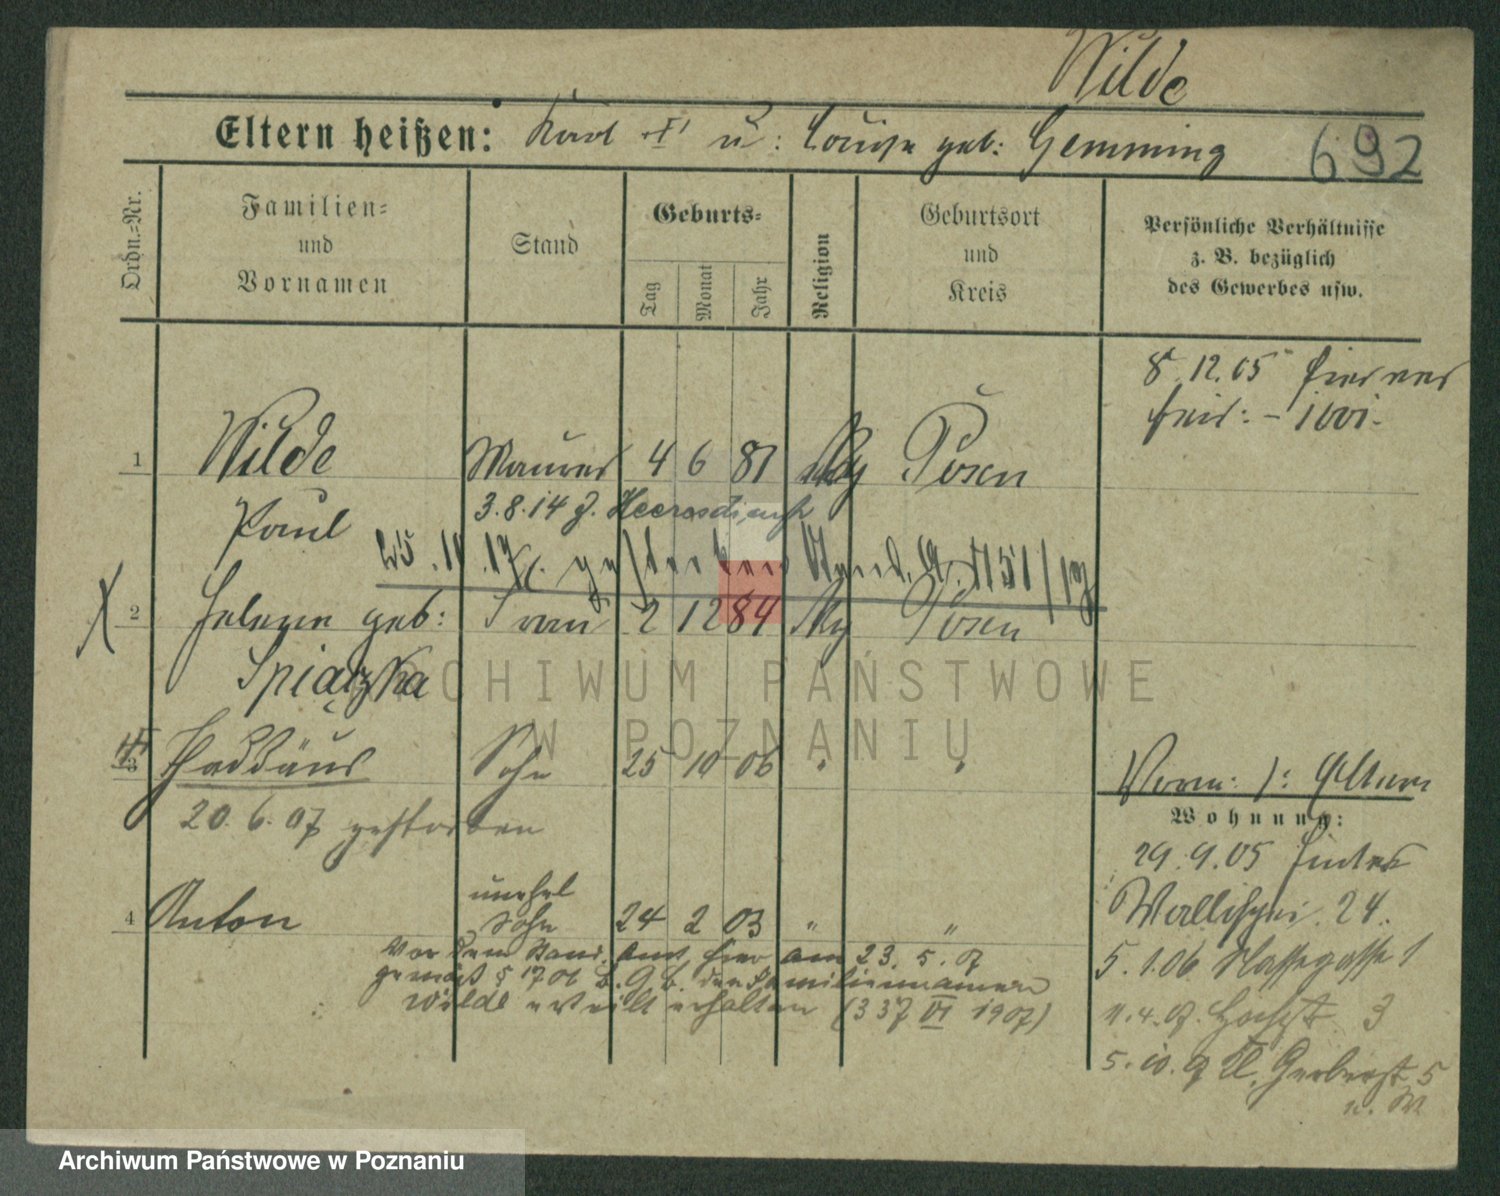 Wilde
Eltern heißen: Karl u: Louise geb: Gemming 692
Ordn.=Nr.
Familien=
und
Vornamen
Stand
Geburts=
Tag
Monat
Jahr
Religion
Geburtsort
und
Kreis
Persönliche Verhältnisse
z. B. bezüglich
des Gewerbes usw.
8.12.05 hier
1 Wilde Maurer 4 6 81 Posen
3.8.14 z. Heeresdienst
Paul
gestorben 1151/17
2 Helene geb: Frau 2 12 84 Posen
Spiączka
3 Thaddäus Sohn 25 10 06 " "
20. 6. 07 gestorben
Vorm: s: Eltern
Wohnung:
29.9.05 Hinter
Wallischei. 24.
unehel
4 Anton Sohn 24 2 03 " "
Vor dem Stand. Amt hier am 23. 5. 07
gemäß § 1706 B. G. B. den Familiennamen
Wilde erteilt erhalten (337 VI 1907)
5.1.06 Nassegasse 1
11.4.07. 3
5.10.07 Kl. Gerberst. 5
ARCHIWUM PAŃSTWOWE
W POZNANIU
Archiwum Państwowe w Poznaniu